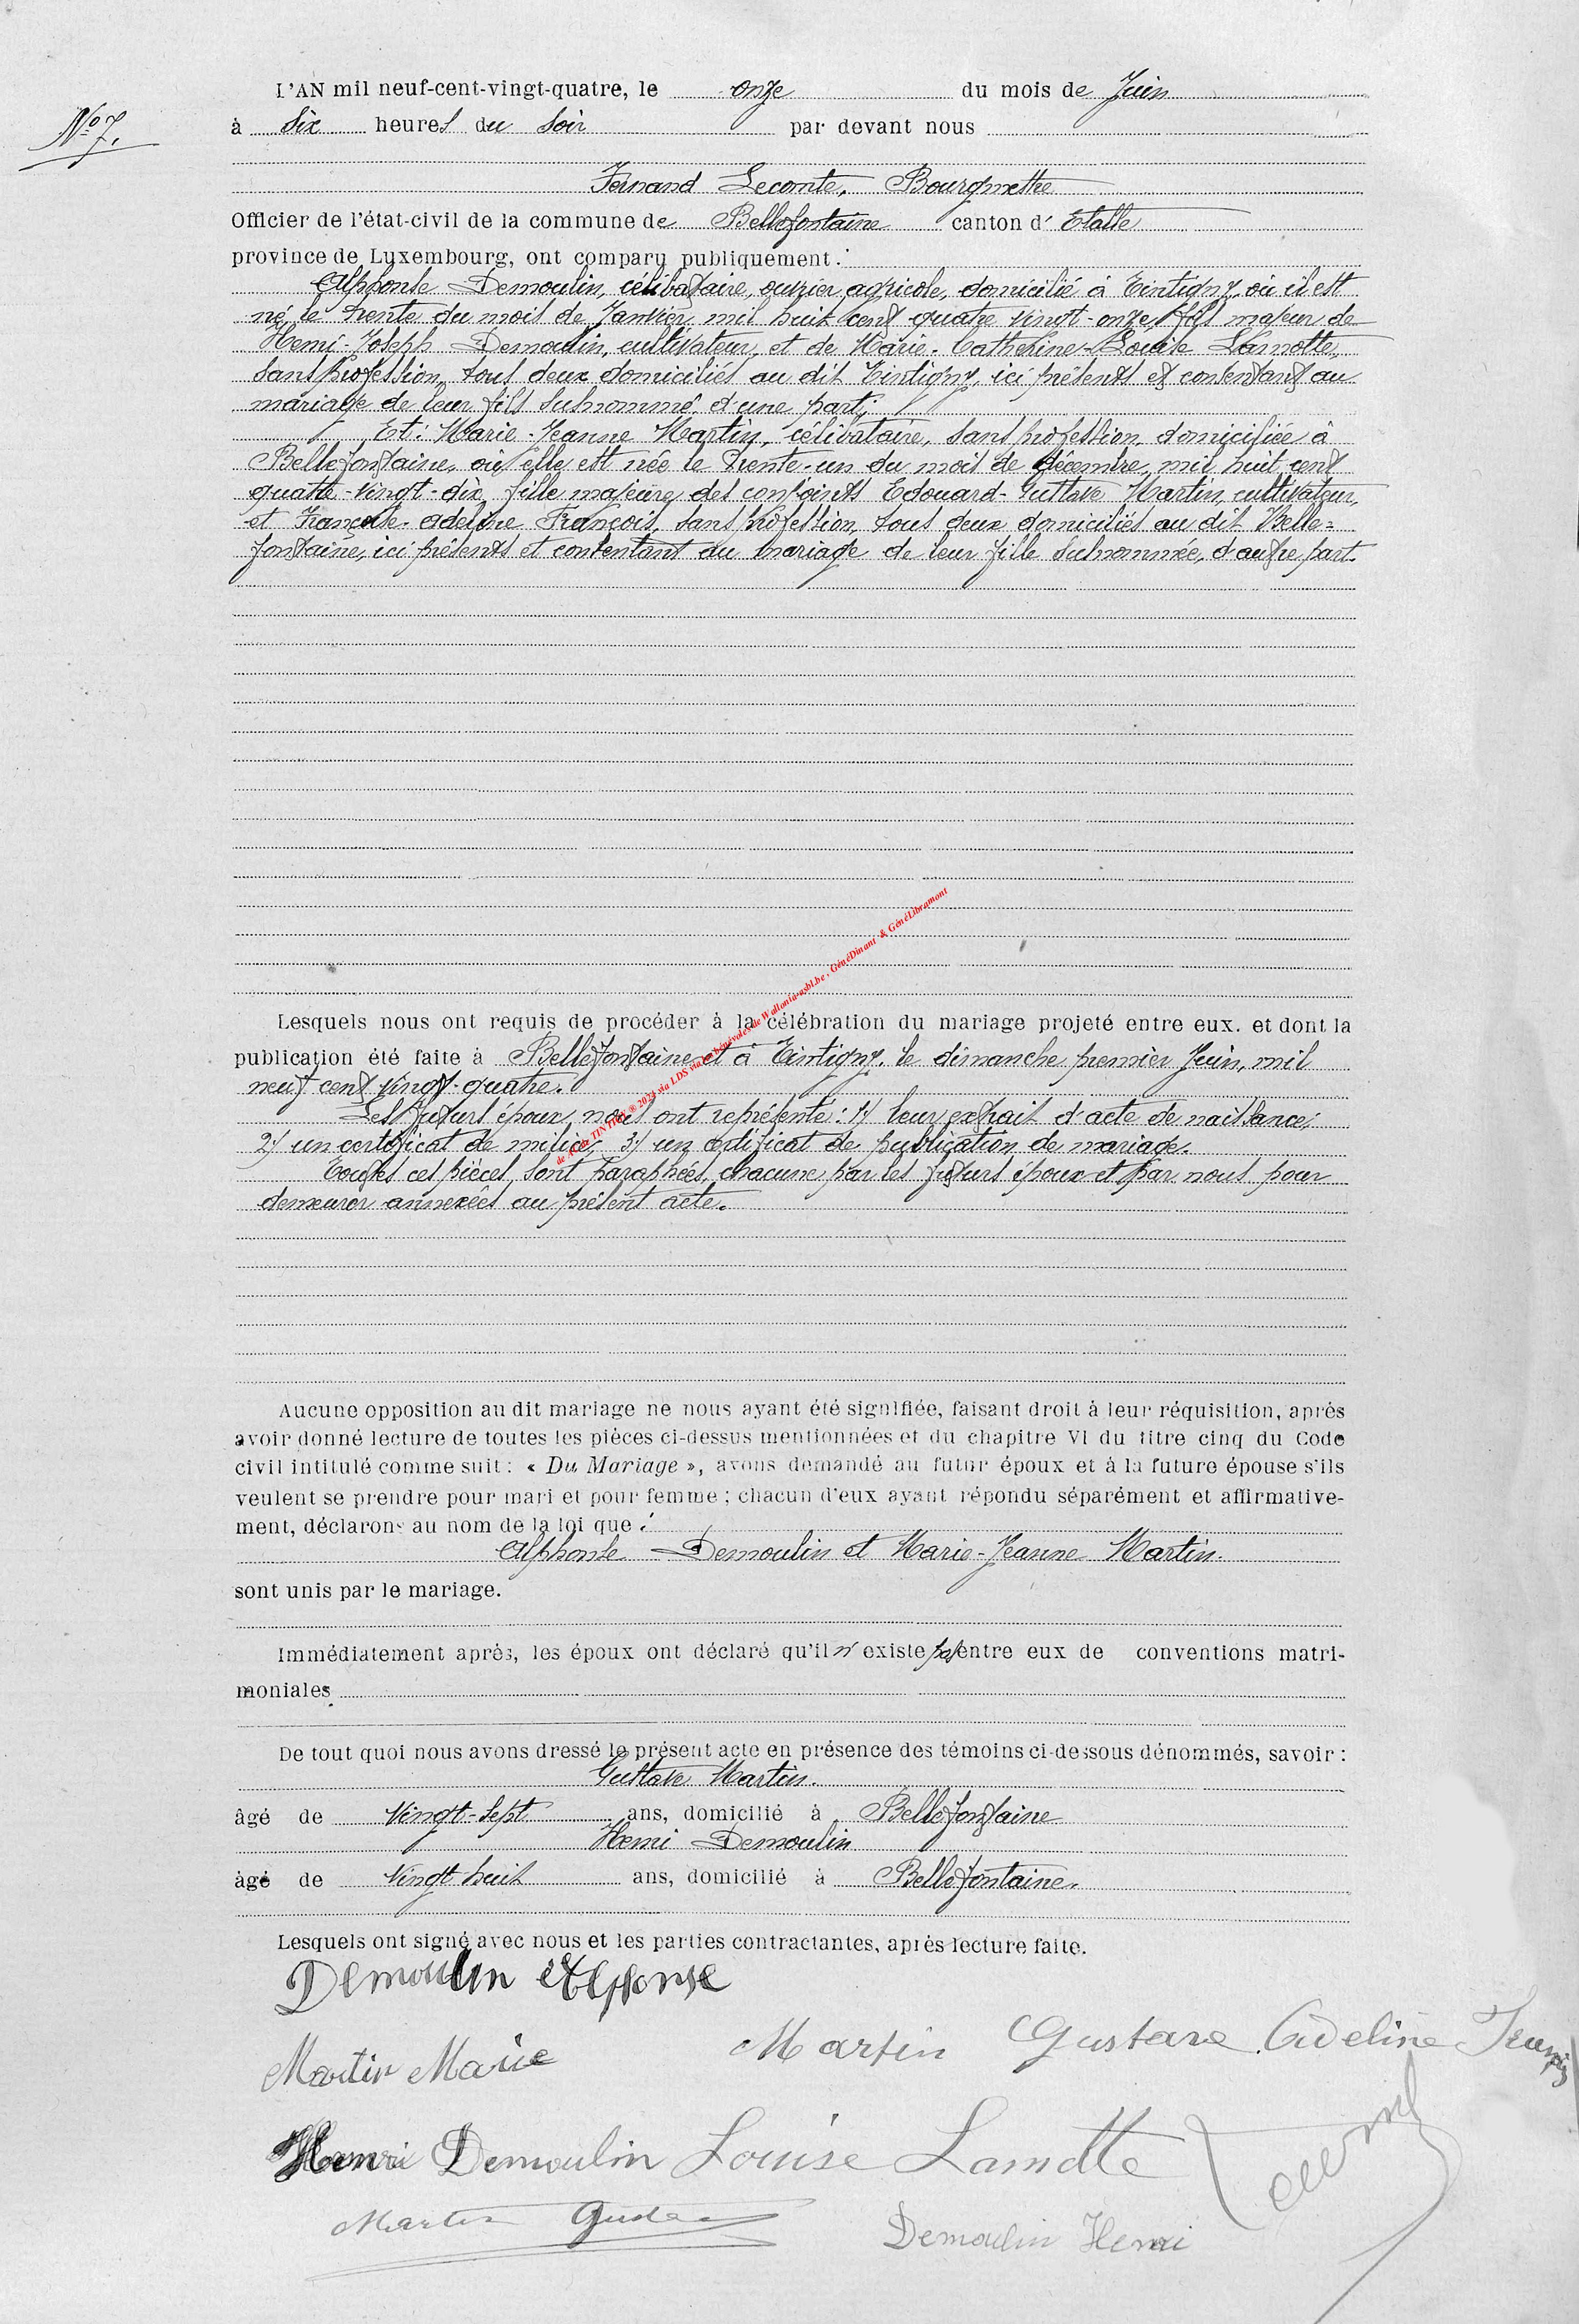 N° 7.
L'AN mil neuf-cent-vingt-quatre, le onze du mois de Juin
à Six heures du Soir par devant nous
Fernand Lecomte, Bourgmestre
Officier de l'état-civil de la commune de Bellefontaine canton d' Etalle
province de Luxembourg, ont comparu publiquement :
Alphonse Demoulin, célibataire, ouvrier agricole, domicilié à Tintigny, où il est
né le trente du mois de Janvier mil huit cent quatre vingt-onze, fils majeur de
Henri-Joseph Demoulin, cultivateur, et de Marie-Catherine-Louise Lamotte,
sans profession, tous deux domiciliés au dit Tintigny, ici présents et consentant au
mariage de leur fils susnommé, d'une part;
Et: Marie-Jeanne Martin, célibataire, sans profession, domiciliée à
Bellefontaine, où elle est née le trente-un du mois de décembre mil huit cent
quatre-vingt-dix, fille majeure des conjoints Edouard-Gustave Martin, cultivateur,
et Françoise-Adeline François, sans profession, tous deux domiciliés au dit Belle=
fontaine, ici présents et consentant au mariage de leur fille susnommée, d'autre part.
Lesquels nous ont requis de procéder à la célébration du mariage projeté entre eux. et dont la
publication été faite à Bellefontaine et à Tintigny, le dimanche premier Juin, mil
neuf cent vingt-quatre.
Les futurs époux nous ont représenté: 1°/ leur extrait d'acte de naissance;
2°/ un certificat de milice; 3°/ un certificat de publication de mariage.
Toutes ces pièces sont paraphées, chacune par les futurs époux et par nous pour
demeurer annexées au présent acte.
de TINTIGNY ® 2024 via LDS via les bénévoles de Wallonia-asbl.be , GénéDinant & GénéLibramont
Aucune opposition au dit mariage ne nous ayant été signifiée, faisant droit à leur réquisition, après
avoir donné lecture de toutes les pièces ci-dessus mentionnées et du chapitre VI du titre cinq du Code
civil intitulé comme suit : « Du Mariage », avons demandé au futur époux et à la future épouse s'ils
veulent se prendre pour mari et pour femme ; chacun d'eux ayant répondu séparément et affirmative-
ment, déclarons au nom de la loi que :
Alphonse Demoulin et Marie-Jeanne Martin.
sont unis par le mariage.
Immédiatement après, les époux ont déclaré qu'il n'existe pas entre eux de conventions matri-
moniales
De tout quoi nous avons dressé le présent acte en présence des témoins ci-dessous dénommés, savoir :
Gustave Martin.
âgé de Vingt-Sept ans, domicilié à Bellefontaine
Henri Demoulin
âgé de Vingt huit ans, domicilié à Bellefontaine.
Lesquels ont signé avec nous et les parties contractantes, après lecture faite.
Demoulin Alphonse
Martin Marie Martin Gustave Adeline François
Henri Demoulin Louise Lamotte
Martin Gustave
Demoulin Henri